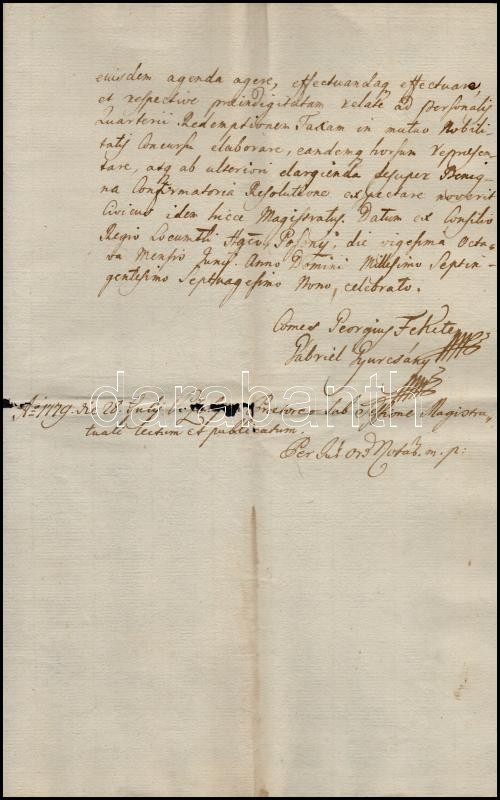 eiusdem agenda agere, effectuandaq effectuare,
et respective præindigitatam relate ad personalis
Quarterii Redemptionem Taxam in mutuo Nobili,,
tatis Concursu elaborare, eandemq horsum repræsen,,
tare, atq ab ulteriori elargienda desuper Benig,,
na Confirmatoria Resolutione expectare noverit
Civicus idem hicce Magistratus. Datum ex Consilio
Regio Locumtli Hgco Posony, die vigesima Octa,,
va Mensis Juny. Anno Domini Millesimo Septin,,
gentesimo Septuagesimo Nono, celebrato.
Comes Georgius Fekete
Gabriel Gyurcsány
darabanth
Ao 1779. die 28 July sub Sessione Magistra,,
tuale lectum et publicatum.
Per Jur. Ord. Notar. m. p: